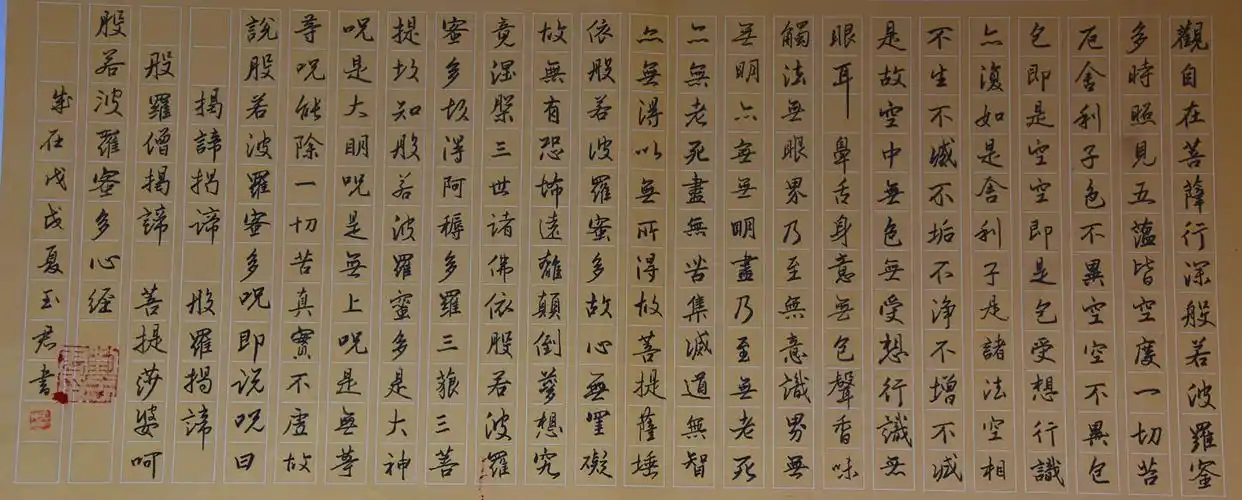 觀自在菩薩行深般若波羅蜜
多時照見五蘊皆空度一切苦
厄舍利子色不異空空不異色
色即是空空即是色受想行識
亦復如是舍利子是諸法空相
不生不滅不垢不淨不增不減
是故空中無色無受想行識無
眼耳鼻舌身意無色聲香味
觸法無眼界乃至無意識界無
無明亦無無明盡乃至無老死
亦無老死盡無苦集滅道無智
亦無得以無所得故菩提薩埵
依般若波羅蜜多故心無罣礙
故無有恐怖遠離顛倒夢想究
竟涅槃三世諸佛依般若波羅
蜜多故得阿耨多羅三藐三菩
提故知般若波羅蜜多是大神
咒是大明咒是無上咒是無等
等咒能除一切苦真實不虛故
說般若波羅蜜多咒即说咒曰
揭諦揭諦 般羅揭諦
般羅僧揭諦 菩提莎婆呵
般若波羅蜜多心經
歲在戊戌夏玉君書